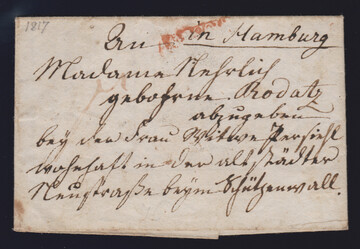 1817
An in Hamburg
Madame Nehrlich
gebohrne Rodatz
abzugeben
bey der Frau Witwe Persiehl
wohnhaft in der altstädter
Neustraße beym Schützenwall.